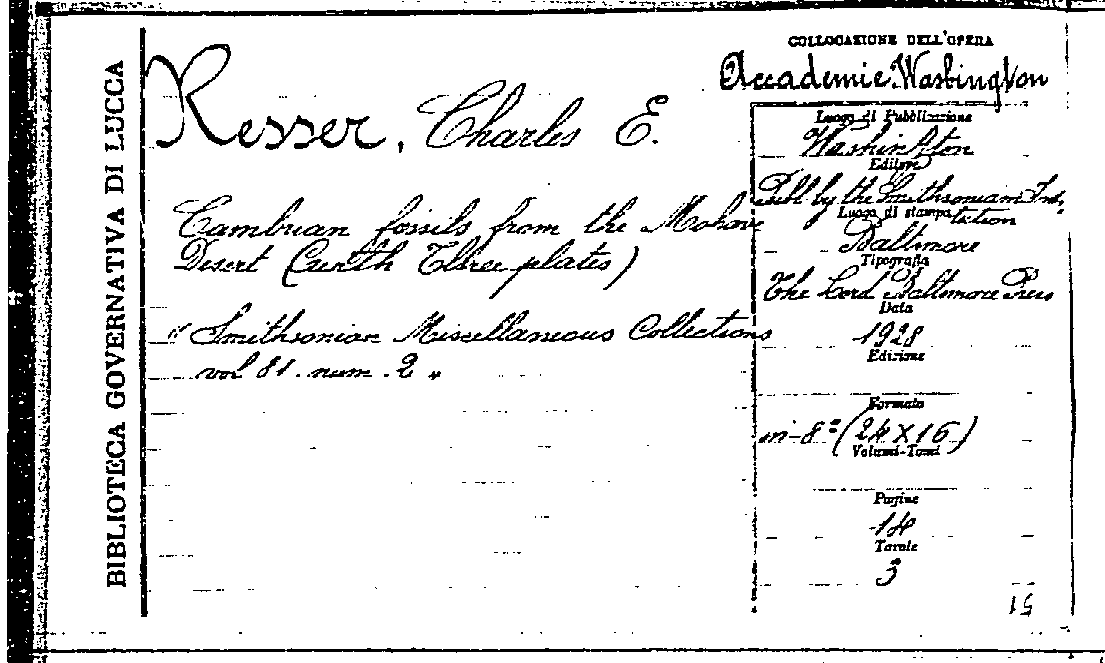 BIBLIOTECA GOVERNATIVA DI LUCCA
Resser, Charles E.
Cambrian fossils from the Mohave
Desert (with Three plates)
"Smithsonian Miscellaneous Collections
vol 81. num. 2"
COLLOCAZIONE DELL'OPERA
Accademie. Washington
Luogo di Pubblicazione
Washington
Editore
Publ by the Smithsonian Insti
tution
Luogo di stampa
Baltimore
Tipografia
The Lord Baltimore Press
Data
1928
Edizione
Formato
in-8° (24 X 16)
Volumi-Tomi
Pagine
14
Tavole
3